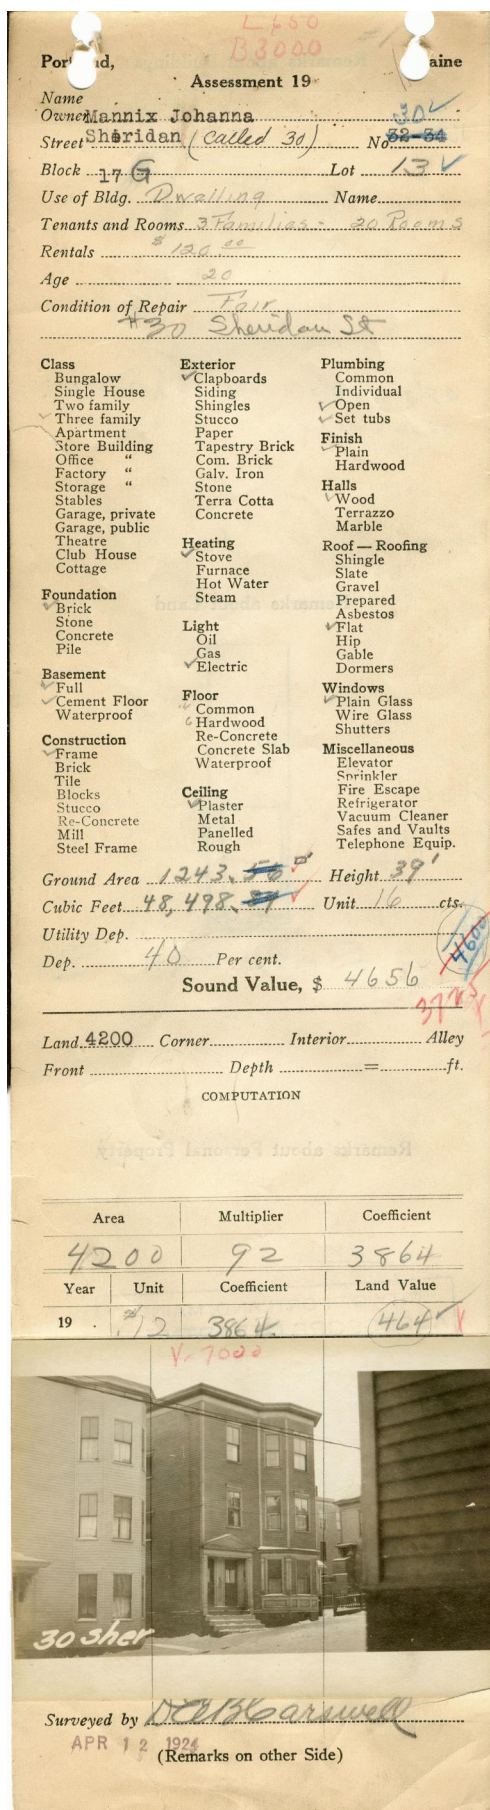 L 650
B 3000
Portland, Maine
Assessment 19
Name
Owner Mannix Johanna
30
Street Sheridan (called 30) No. 32-34
Block 17 G Lot 13
Use of Bldg. Dwelling Name
Tenants and Rooms 3 Families - 20 Rooms
Rentals $120.00
Age 20
Condition of Repair Fair
#30 Sheridan St
Class
Bungalow
Single House
Two family
Three family
Apartment
Store Building
Office "
Factory "
Storage "
Stables
Garage, private
Garage, public
Theatre
Club House
Cottage
Foundation
Brick
Stone
Concrete
Pile
Basement
Full
Cement Floor
Waterproof
Construction
Frame
Brick
Tile
Blocks
Stucco
Re-Concrete
Mill
Steel Frame
Exterior
Clapboards
Siding
Shingles
Stucco
Paper
Tapestry Brick
Com. Brick
Galv. Iron
Stone
Terra Cotta
Concrete
Heating
Stove
Furnace
Hot Water
Steam
Light
Oil
Gas
Electric
Floor
Common
Hardwood
Re-Concrete
Concrete Slab
Waterproof
Ceiling
Plaster
Metal
Panelled
Rough
Plumbing
Common
Individual
Open
Set tubs
Finish
Plain
Hardwood
Halls
Wood
Terrazzo
Marble
Roof — Roofing
Shingle
Slate
Gravel
Prepared
Asbestos
Flat
Hip
Gable
Dormers
Windows
Plain Glass
Wire Glass
Shutters
Miscellaneous
Elevator
Sprinkler
Fire Escape
Refrigerator
Vacuum Cleaner
Safes and Vaults
Telephone Equip.
Ground Area 1243. Height 39'
Cubic Feet 48,498. Unit 16 cts.
Utility Dep.
4600
Dep. 40 Per cent.
Sound Value, $ 4656
3725
Land 4200 Corner Interior Alley
Front Depth = ft.
COMPUTATION
Area Multiplier Coefficient
4200 92 3864
Year Unit Coefficient Land Value
19 . $.12 3864 464
V-7000
30 sher
Surveyed by Carswell
APR 12 1924
(Remarks on other Side)